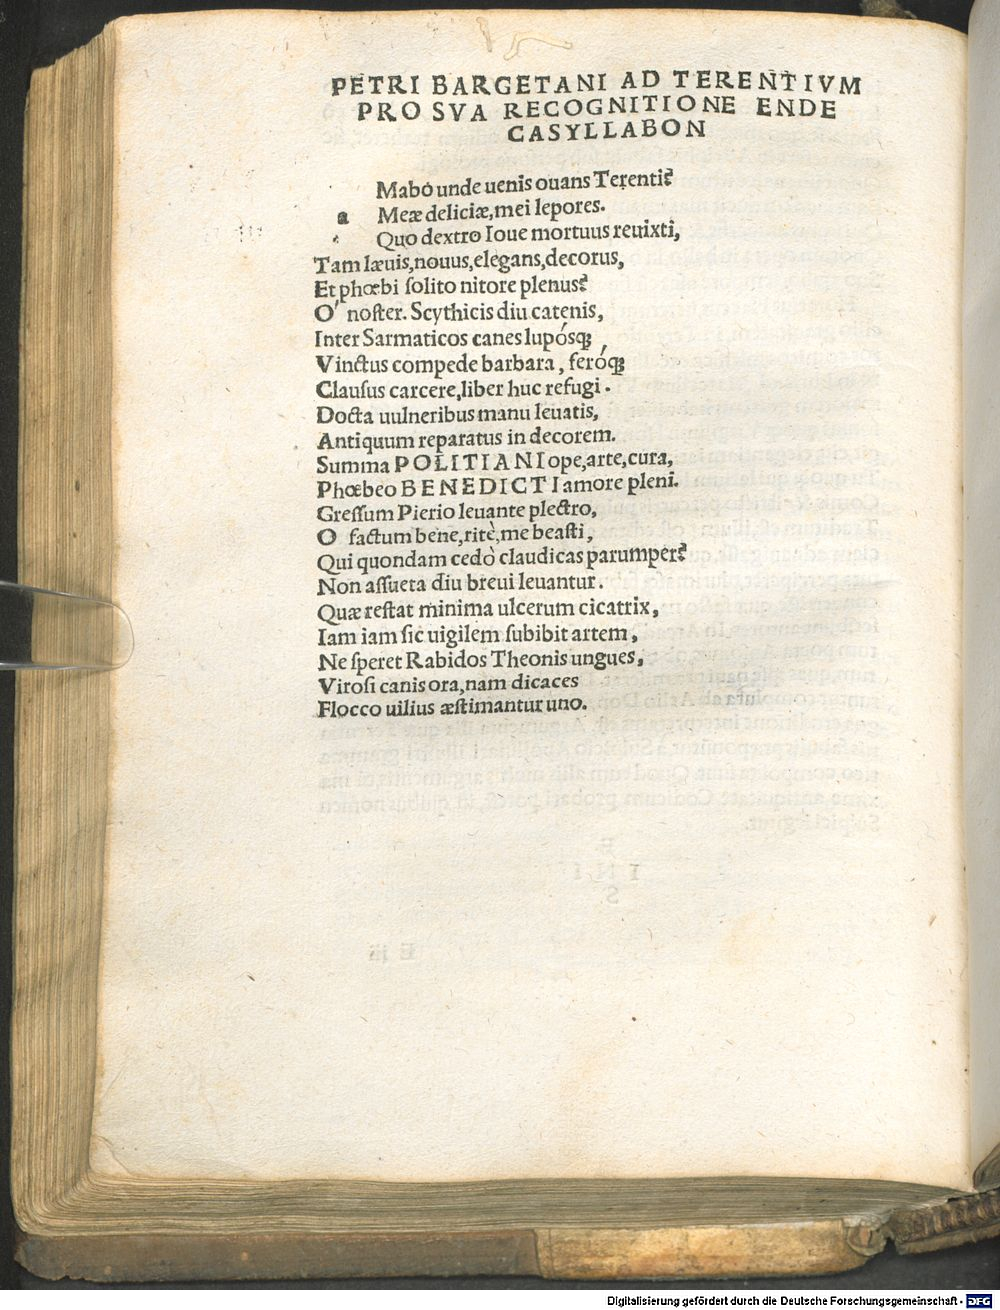 PETRI BARGETANI AD TERENTIVM
PRO SVA RECOGNITIONE ENDE
CASYLLABON
Mabo unde uenis ouans Terenti?
a Meæ deliciæ, mei lepores.
Quo dextro Ioue mortuus reuixti,
Tam læuis, nouus, elegans, decorus,
Et phœbi solito nitore plenus?
O' noster. Scythicis diu catenis,
Inter Sarmaticos canes lupósq;
Vinctus compede barbara, feróq;
Clausus carcere, liber huc refugi.
Docta uulneribus manu leuatis,
Antiquum reparatus in decorem.
Summa POLITIANI ope, arte, cura,
Phœbeo BENEDICTI amore pleni.
Gressum Pierio leuante plectro,
O factum bene, ritè, me beasti,
Qui quondam cedò claudicas parumper?
Non assueta diu breui leuantur.
Quæ restat minima ulcerum cicatrix,
Iam iam sic uigilem subibit artem,
Ne speret Rabidos Theonis ungues,
Virosi canis ora, nam dicaces
Flocco uilius æstimantur uno.
Digitalisierung gefördert durch die Deutsche Forschungsgemeinschaft - DFG